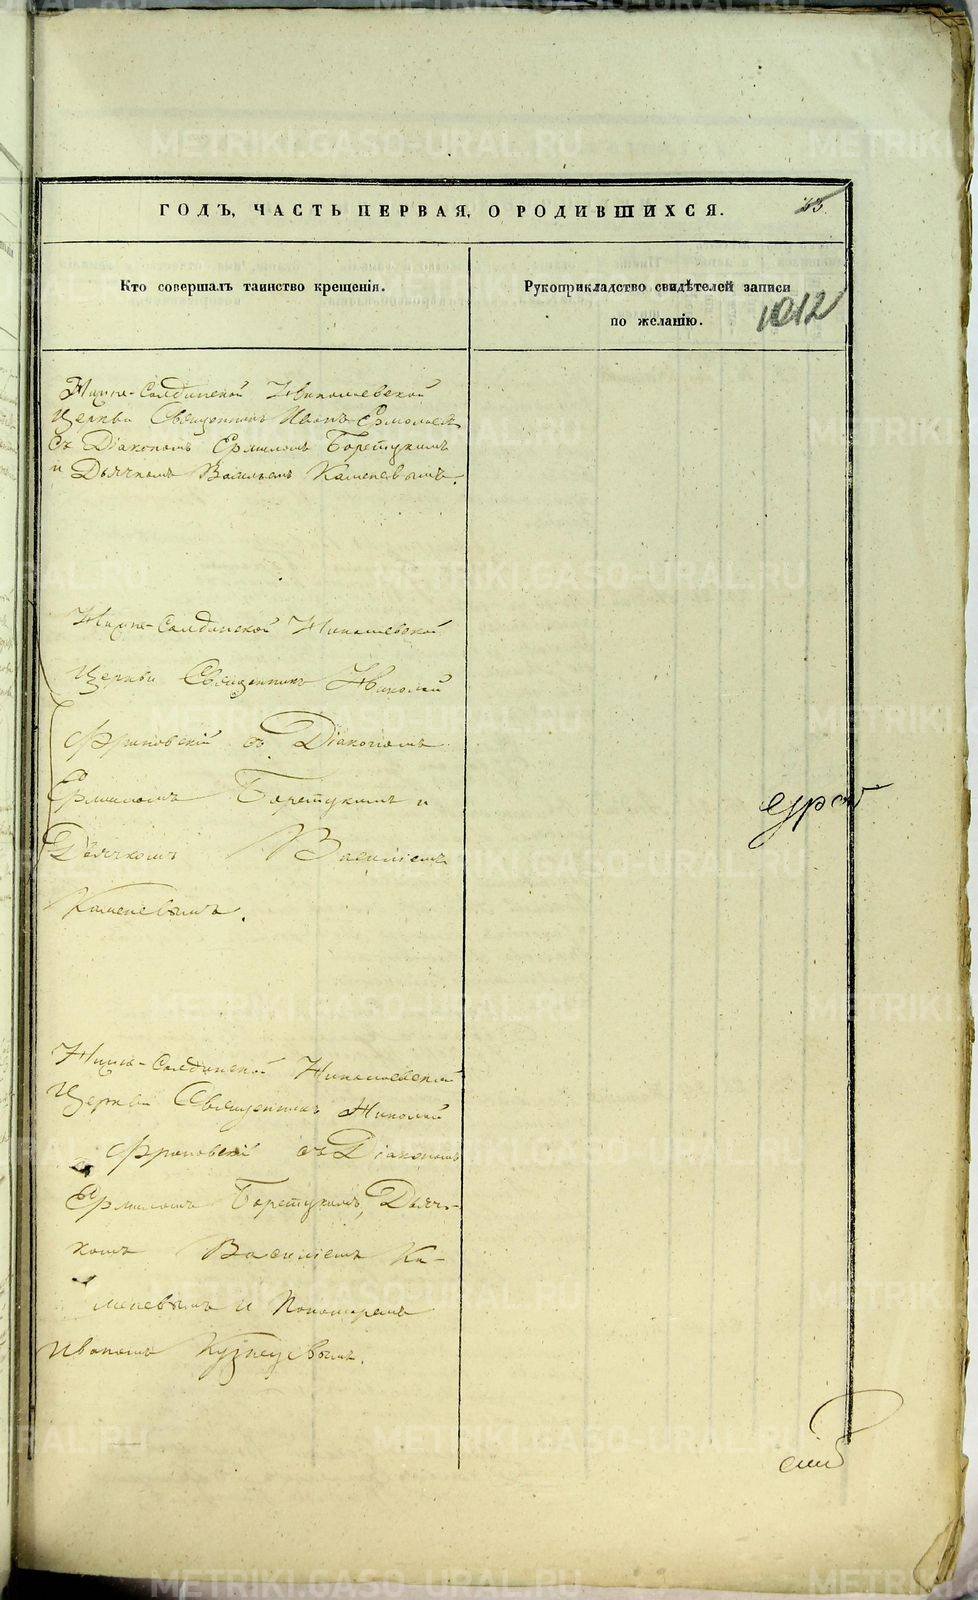 ГОДЪ, ЧАСТЬ ПЕРВАЯ, О РОДИВШИХСЯ.
Кто совершалъ таинство крещенія.
Рукоприкладство свидѣтелей записи
по желанію.
1012
Нижне-Салдинской Николаевской
Церкви Священникъ Иоанъ
съ Діакономъ Ермиломъ Боретцкимъ
и Дьячкомъ Васильемъ Каменевымъ.
Нижне-Салдинской Николаевской
Церкви Священникъ Николай
Фряновскій съ Діакономъ
Ермиломъ Боретцкимъ и
Дьячкомъ Василіемъ
Каменевымъ.
Нижне-Салдинской Николаевской
Церкви Священникъ Николай
Фряновскій съ Діакономъ
Ермиломъ Боретцкимъ, Дьяч-
комъ Василіемъ Ка-
меневымъ и Пономаремъ
Иваномъ Кузнецовымъ.
METRIKI.GASO-URAL.RU